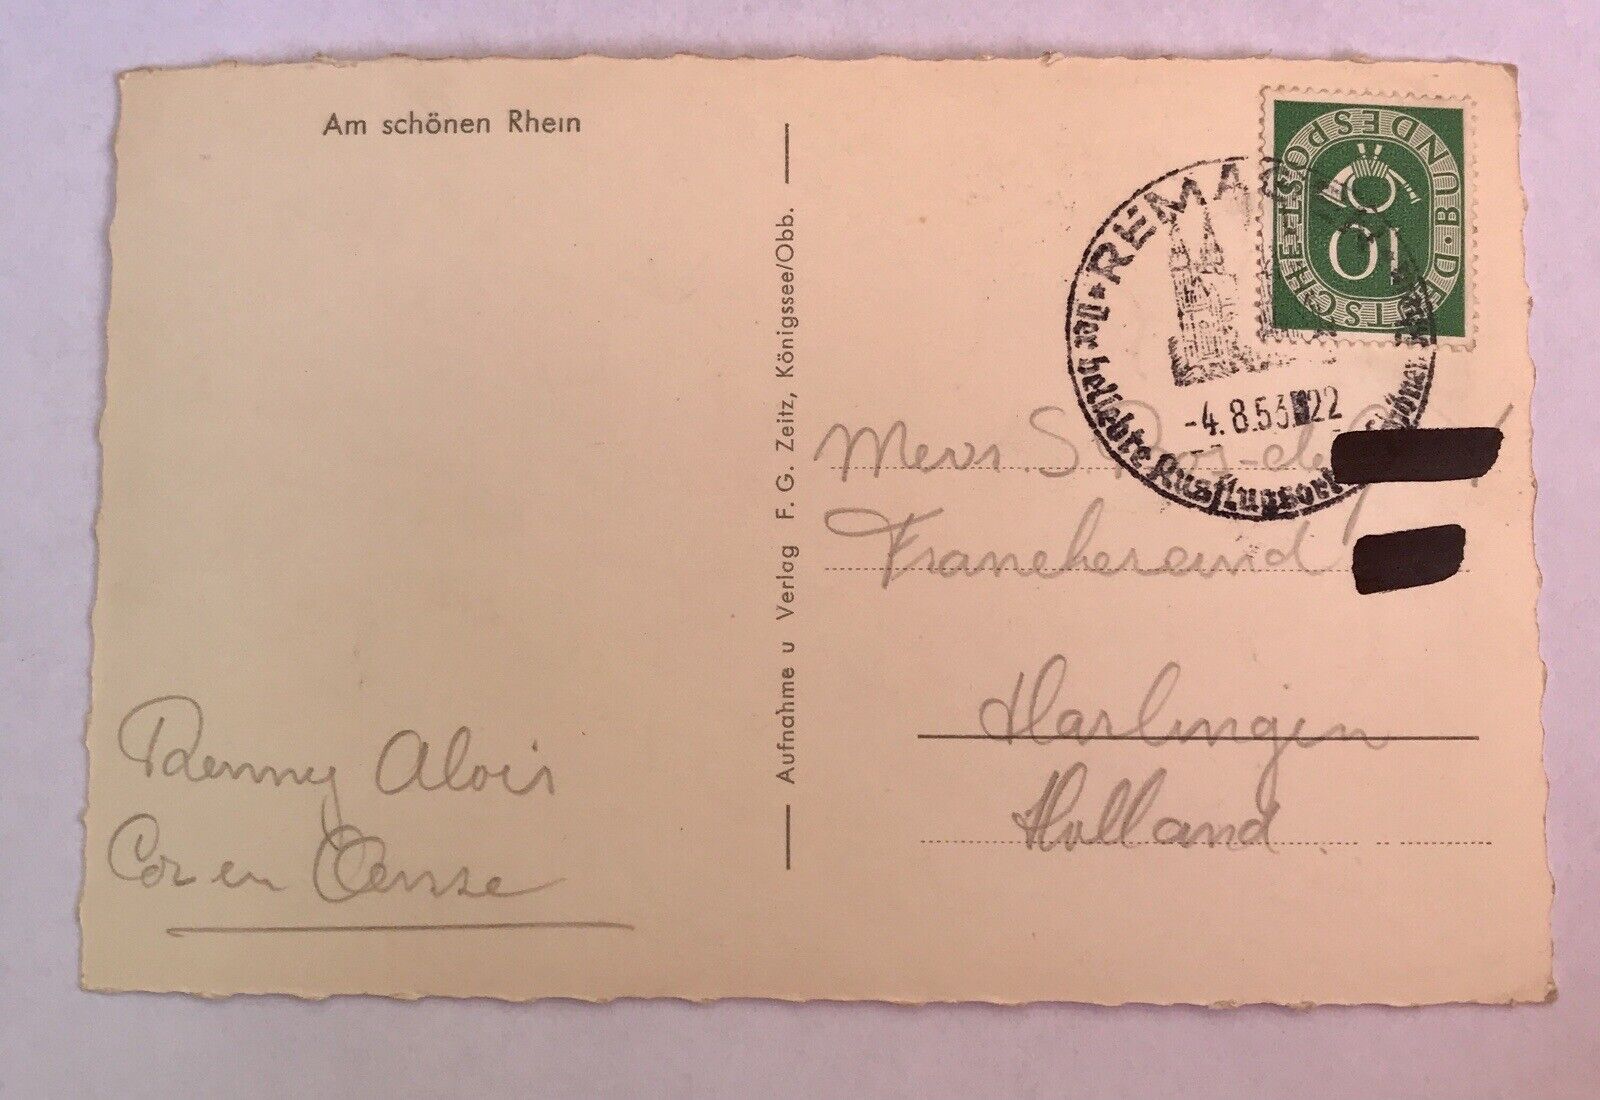 Am schönen Rhein
Aufnahme u Verlag F. G. Zeitz, Königssee/Obb.
DEUTSCHE BUNDESPOST
10
REMAGEN
-4.8.53 22
der beliebte Ausflugsort schönen Rhein
Mevr. S. Roos-de
Franekereind
Harlingen
Holland
Renny Alois
Cor en